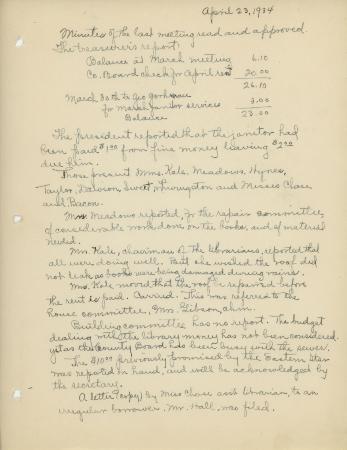 April 23, 1934
Minutes of the last meeting read and approved.
The treasurer's report:
Balance at March meeting 6.10
Co. Board check for April rent 20.00
26.10
March 30th to Geo
for March janitor services 3.00
Balance 23.00
The president reported that the janitor had
been paid $1.00 from fine money leaving $2.00
due him.
Those present Mmes. Kale, Meadows, Hynes,
Taylor, Dawson, Sweet, Livingston and Misses Chase
and Bacon.
Mrs Meadows reported, for the repair committee,
of considerable work done on the books, and of material
needed.
Mrs. Kale, chairman of the librarians, reported that
all were doing well. But she wished the roof did
not leak as books were being damaged during rains.
Mrs. Kale moved that the roof be repaired before
the rent is paid. Carried. This was referred to the
house committee, Mrs. Gibson, chm.
Building committee has no report. The budget
dealing with the library money has not been considered
yet as the County Board has been busy with the sewer.
The $10.00 previously promised by the Eastern Star
was reported in hand, and will be acknowledged by
the secretary.
A letter (copy) by Miss Chase asst librarian, to an
irregular borrower, Mr. Hall, was filed.